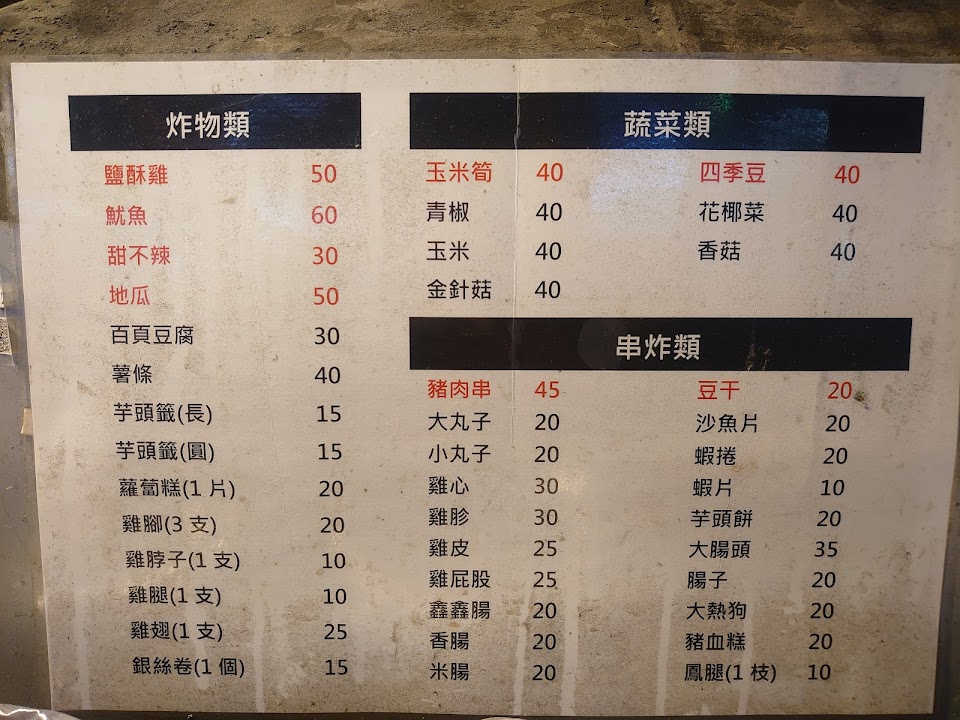 炸物類
鹽酥雞 50
魷魚 60
甜不辣 30
地瓜 50
百頁豆腐 30
薯條 40
芋頭籤(長) 15
芋頭籤(圓) 15
蘿蔔糕(1 片) 20
雞腳(3 支) 20
雞脖子(1 支) 10
雞腿(1 支) 10
雞翅(1 支) 25
銀絲卷(1 個) 15
蔬菜類
玉米筍 40 四季豆 40
青椒 40 花椰菜 40
玉米 40 香菇 40
金針菇 40
串炸類
豬肉串 45 豆干 20
大丸子 20 沙魚片 20
小丸子 20 蝦捲 20
雞心 30 蝦片 10
雞胗 30 芋頭餅 20
雞皮 25 大腸頭 35
雞屁股 25 腸子 20
鑫鑫腸 20 大熱狗 20
香腸 20 豬血糕 20
米腸 20 鳳腿(1 枝) 10